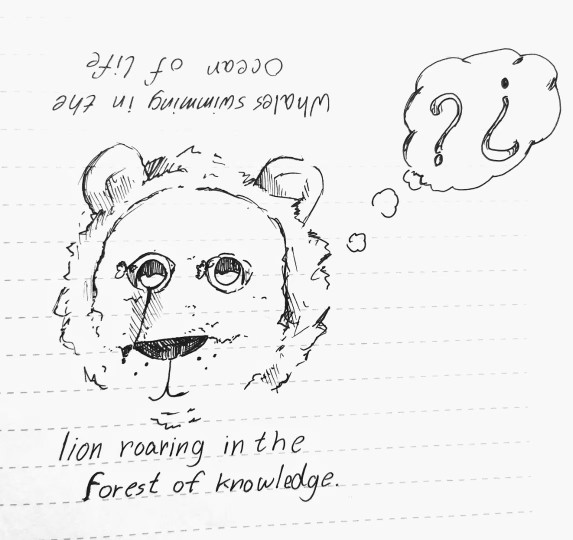 Whales swimming in the
Ocean of life
? ¿
lion roaring in the
forest of knowledge.